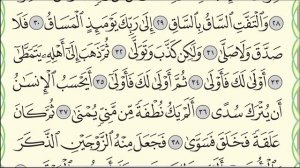 ٢٨ وَٱلْتَفَّتِ ٱلسَّاقُ بِٱلسَّاقِ ٢٩ إِلَىٰ رَبِّكَ يَوْمَئِذٍ ٱلْمَسَاقُ ٣٠ فَلَا
صَدَّقَ وَلَا صَلَّىٰ ٣١ وَلَٰكِن كَذَّبَ وَتَوَلَّىٰ ٣٢ ثُمَّ ذَهَبَ إِلَىٰٓ أَهْلِهِۦ يَتَمَطَّىٰٓ
٣٣ أَوْلَىٰ لَكَ فَأَوْلَىٰ ٣٤ ثُمَّ أَوْلَىٰ لَكَ فَأَوْلَىٰٓ ٣٥ أَيَحْسَبُ ٱلْإِنسَٰنُ
أَن يُتْرَكَ سُدًى ٣٦ أَلَمْ يَكُ نُطْفَةً مِّن مَّنِىٍّ يُمْنَىٰ ٣٧ ثُمَّ كَانَ
عَلَقَةً فَخَلَقَ فَسَوَّىٰ ٣٨ فَجَعَلَ مِنْهُ ٱلزَّوْجَيْنِ ٱلذَّكَرَ